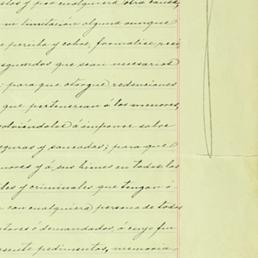 stos y por cualquiera otra causa,
sin limitacion alguna aunque
perciba y cobre, formalice reci
sguardos que sean necesarios
para que otorgue redenciones
que pertenecian á los menores,
volviéndolos á imponer sobre
eguras y saneadas; para que
enores y á sus bienes en todos los
les y criminales que tengan ó
n con cualquiera persona de todos
ctores ó demandados, á cuyo fin
sente pedimentos, memoria